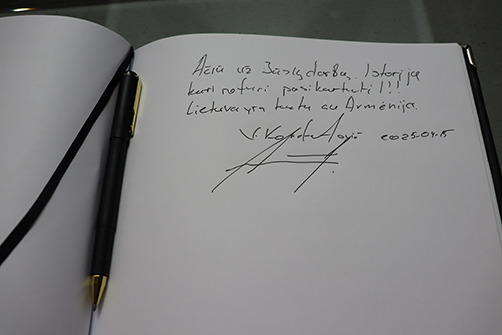 Ačiū už Jūsų darbą. Istorija
kuri neturi pasikartoti!!!
Lietuva yra kartu su Armėnija.
2025.04.15